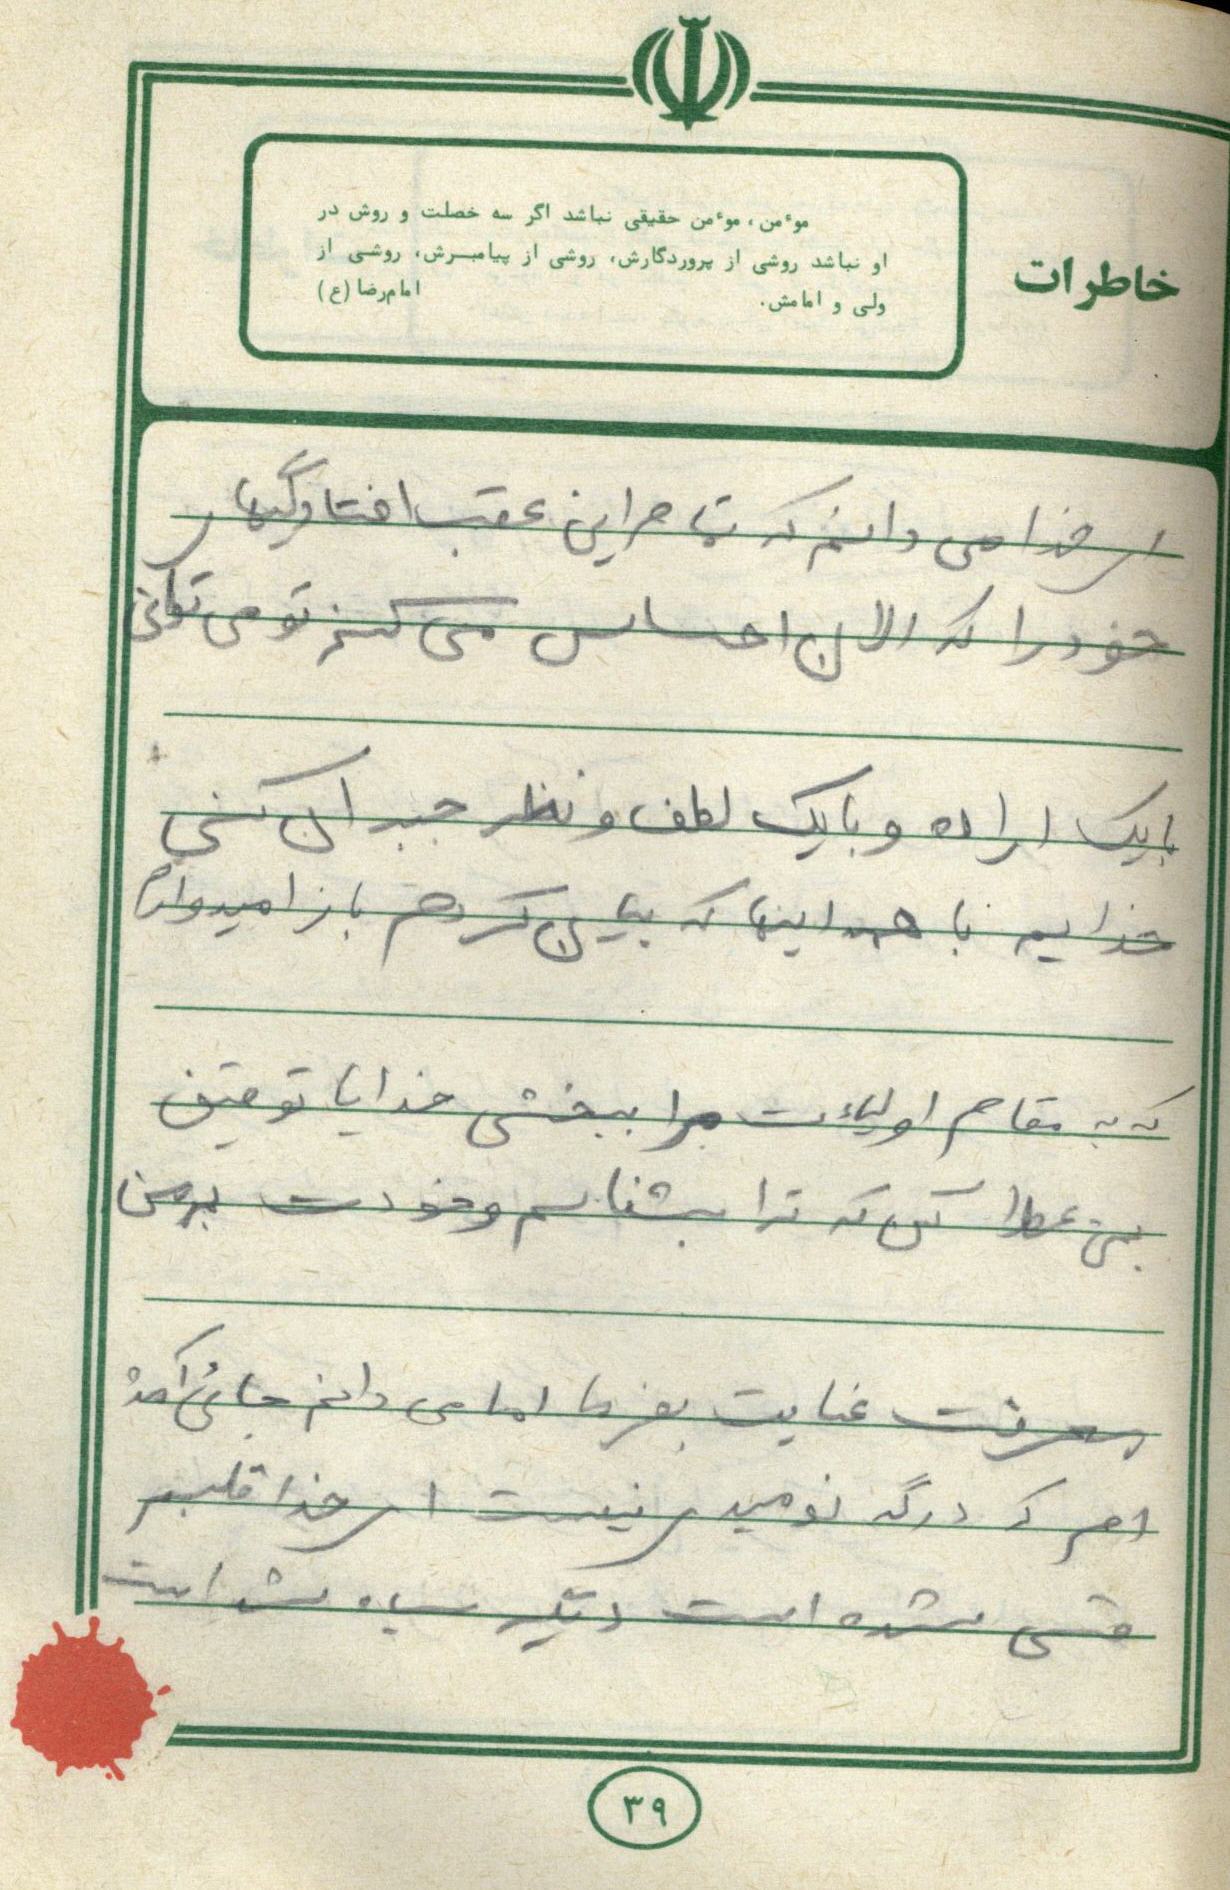 خاطرات
موٴمن، موٴمن حقیقی نباشد اگر سه خصلت و روش در
او نباشد روشی از پروردگارش، روشی از پیامبرش، روشی از
ولی و امامش. امام‌رضا (ع)
ای خدا می دانم که تمام این عقب افتادگیهای
خود را که الان احساس می کنم تو می توانی
بایک اراده و بایک لطف و نظر جبران کنی
خدایا با همه اینها که بیان کردم باز امیدوارم
که به مقام اولیاءت مرا ببخشی خدایا توفیق
بمن عطا کن که ترا بشناسم و خودت بر من
معرفت عنایت بفرما اما می دانم جائی آمده
ام که درگه نومیدی نیست ای خدا قلبم
قسی شده است دیگر سیاه شده است
۳۹